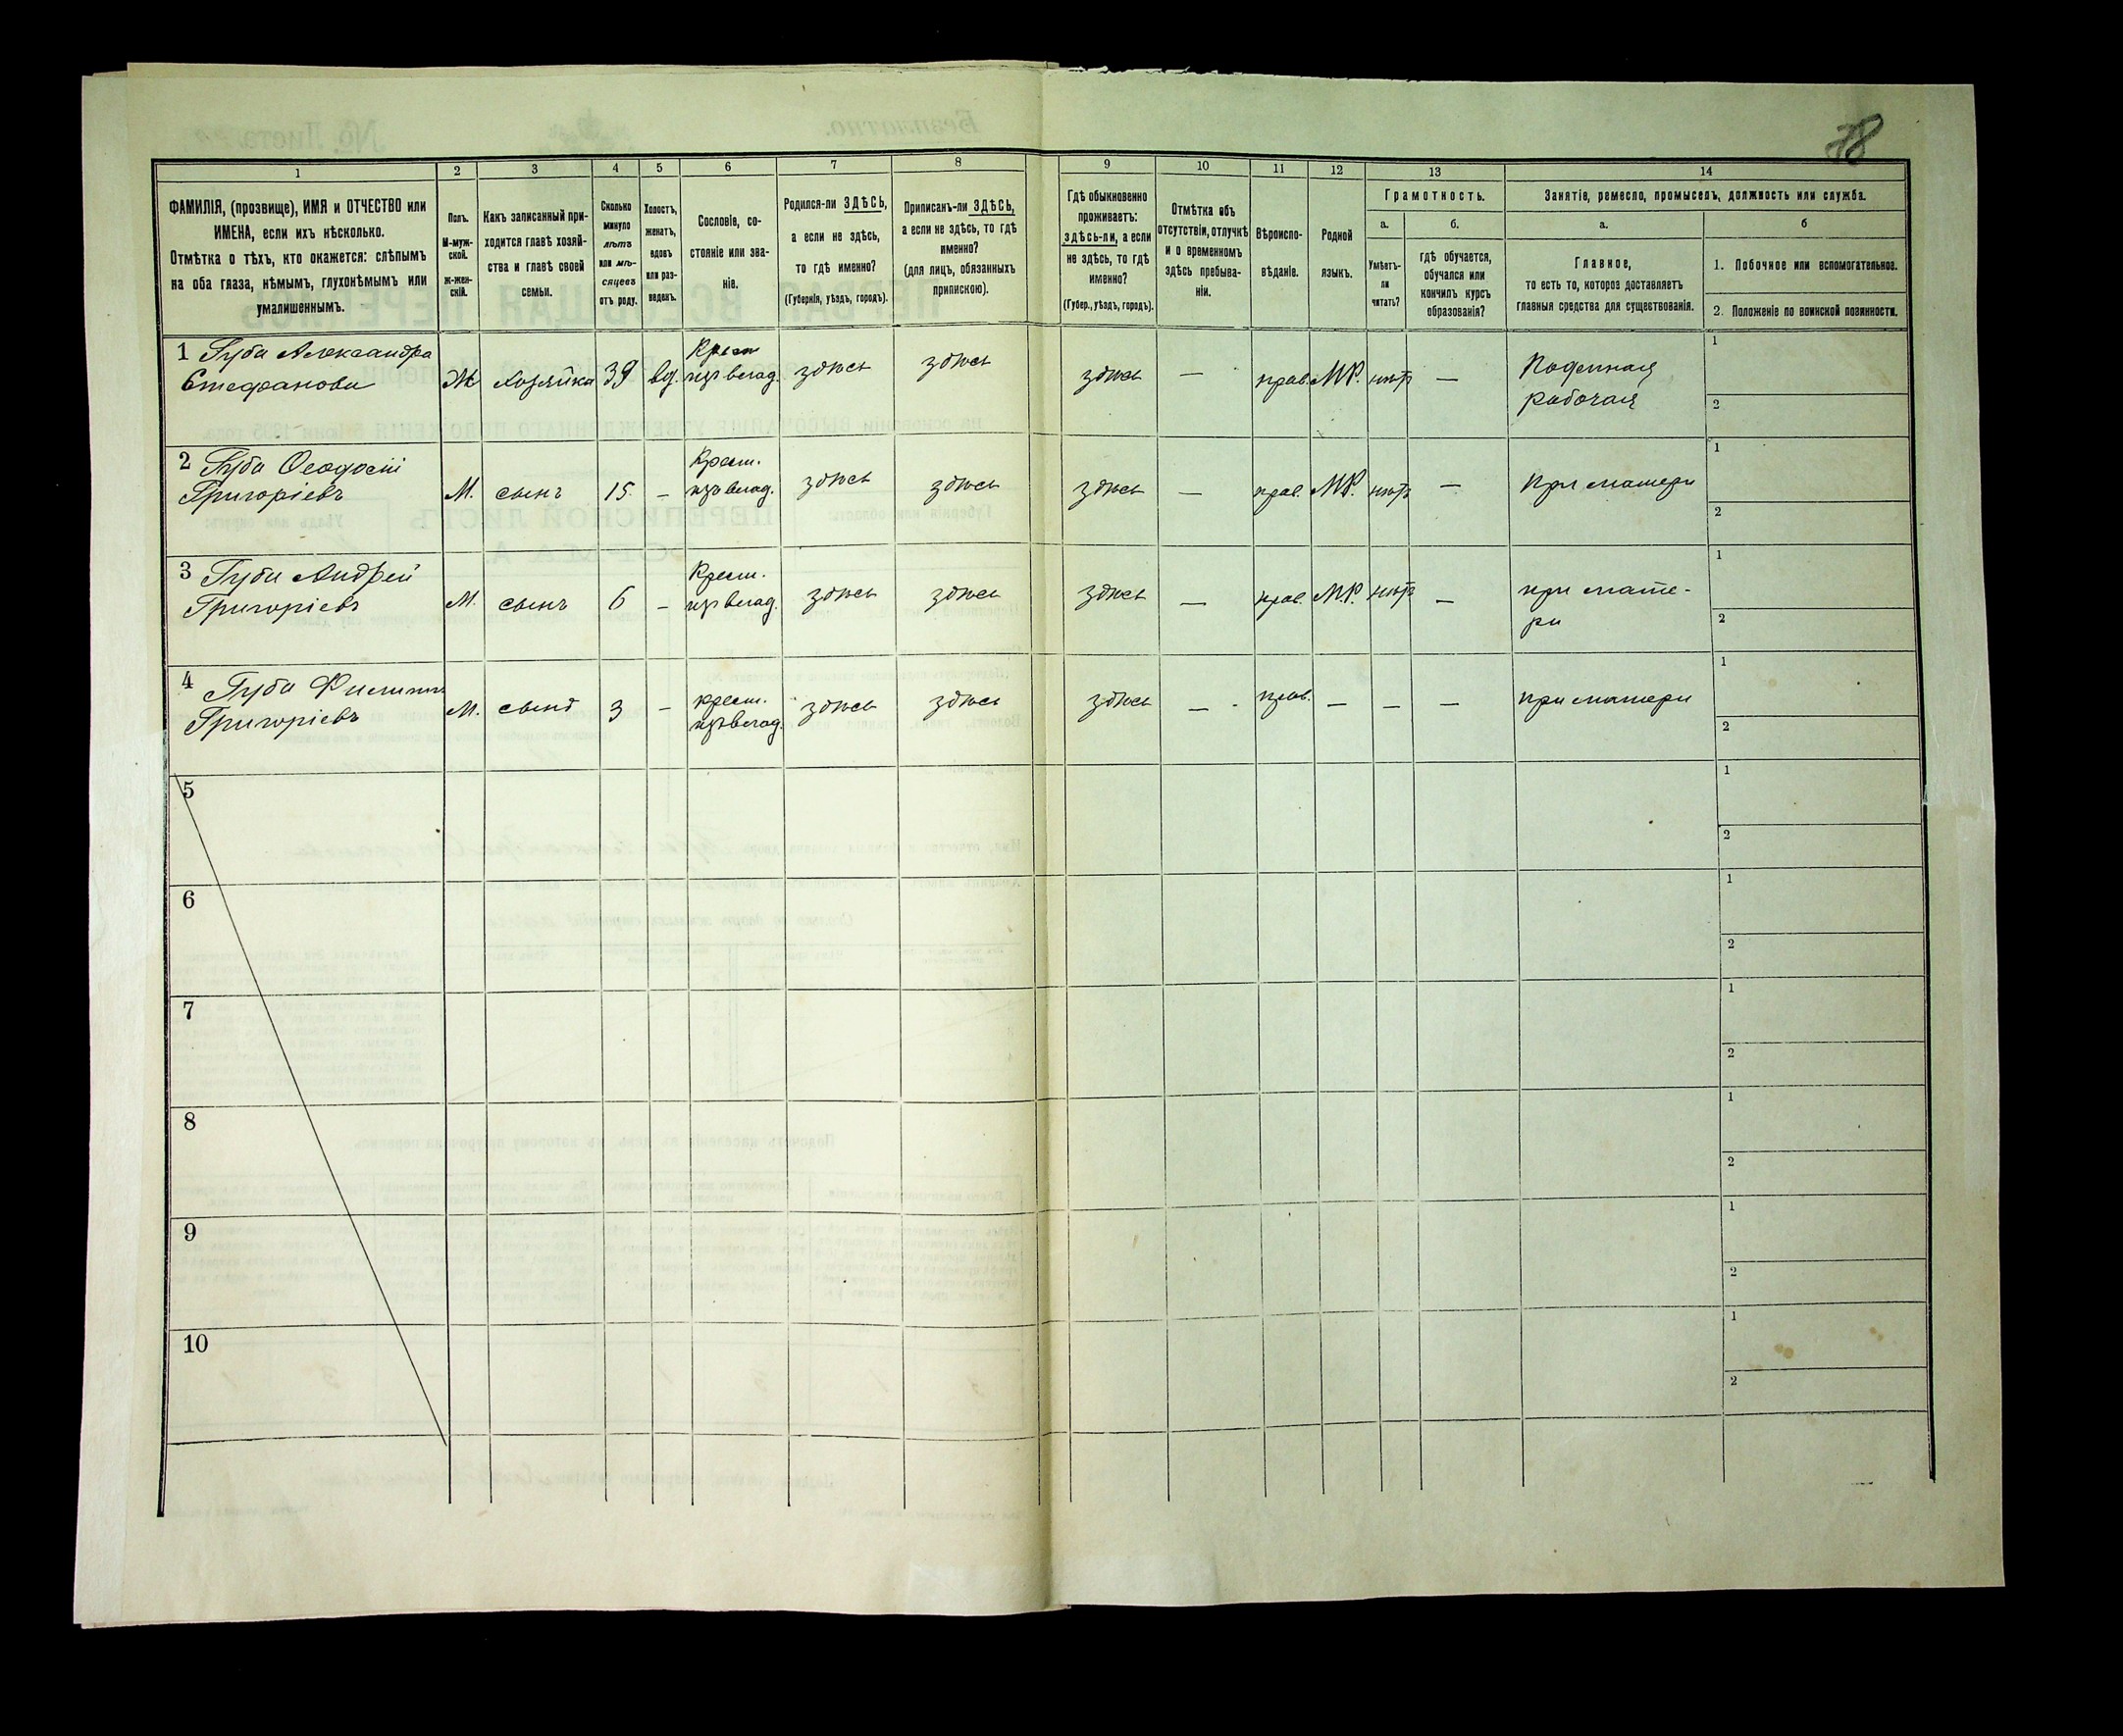 78
1
2
3
4
5
6
7
8
9
10
11
12
13
14
ФАМИЛІЯ, (прозвище), ИМЯ и ОТЧЕСТВО или
ИМЕНА, если ихъ нѣсколько.
Отмѣтка о тѣхъ, кто окажется: слѣпымъ
на оба глаза, нѣмымъ, глухонѣмымъ или
умалишеннымъ.
Полъ.
М-муж-
ской.
ж-жен-
скій.
Какъ записанный при-
ходится главѣ хозяй-
ства и главѣ своей
семьи.
Сколько
минуло
лѣтъ
или мѣ-
сяцевъ
отъ роду.
Холостъ,
женатъ,
вдовъ
или раз-
веденъ.
Сословіе, со-
стояніе или зва-
ніе.
Родился-ли ЗДѢСЬ,
а если не здѣсь,
то гдѣ именно?
(Губернія, уѣздъ, городъ).
Приписанъ-ли ЗДѢСЬ,
а если не здѣсь, то гдѣ
именно?
(для лицъ, обязанныхъ
припискою).
Гдѣ обыкновенно
проживаетъ:
здѣсь-ли, а если
не здѣсь, то гдѣ
именно?
(Губер., уѣздъ, городъ).
Отмѣтка объ
отсутствіи, отлучкѣ
и о временномъ
здѣсь пребыва-
ніи.
Вѣроиспо-
вѣданіе.
Родной
языкъ.
Грамотность.
а.
Умѣетъ-
ли
читать?
б.
гдѣ обучается,
обучался или
кончилъ курсъ
образованія?
Занятіе, ремесло, промыселъ, должность или служба.
а.
Главное,
то есть то, которое доставляетъ
главныя средства для существованія.
б
1. Побочное или вспомогательное.
2. Положеніе по воинской повинности.
1 Губа Александра
Стефанова
Ж
хозяйка
39
вд.
Крест
изъ влад.
здѣсь
здѣсь
здѣсь
—
прав.
М.Р.
нѣтъ
—
Поденная
рабочая
1
2
2 Губа Ѳеодосій
Григоріевъ
М.
сынъ
15
—
Крест.
изъ влад.
здѣсь
здѣсь
здѣсь
—
прав.
М.Р.
нѣтъ
—
При матери
1
2
3 Губа Андрей
Григоріевъ
М.
сынъ
6
—
Крест.
изъ влад.
здѣсь
здѣсь
здѣсь
—
прав.
М.Р.
нѣтъ
—
при мате-
ри
1
2
4 Губа Филиппъ
Григоріевъ
М.
сынъ
3
—
крест.
изъ влад.
здѣсь
здѣсь
здѣсь
—
прав.
—
—
—
при матери
1
2
5
1
2
6
1
2
7
1
2
8
1
2
9
1
2
10
1
2